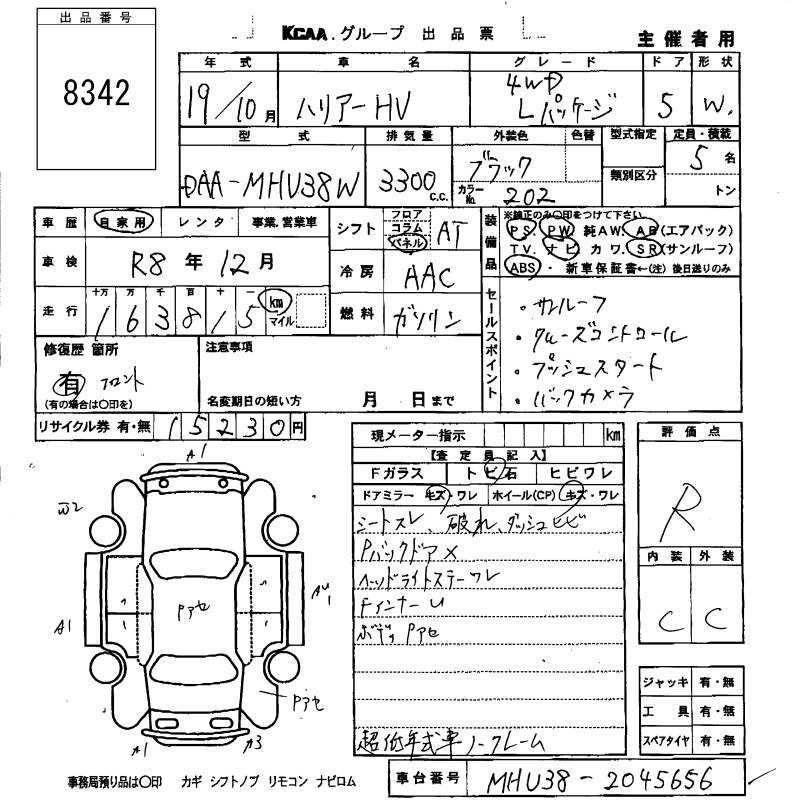 出品番号
8342
KCAA.グループ 出品票
主催者用
年式 車名 グレード ドア 形状
19/10月 ハリアーHV 4WD Lパッケージ 5 W.
型式 排気量 外装色 色替 型式指定 定員・積載
DAA-MHU38W 3300 c.c. ブラック 類別区分 5名
カラーNo. 202 トン
車歴 自家用 レンタ 事業.営業車
シフト フロア コラム パネル AT
装備品
※純正のみ〇印をつけて下さい
PS PW 純AW. AB(エアバック)
TV. ナビ カワ. SR(サンルーフ)
ABS・ 新車保証書←(注)後日送りのみ
車検 R8年12月
冷房 AAC
走行 十万 万 千 百 十 一
163815 km マイル
燃料 ガソリン
セールスポイント
・サンルーフ
・クルーズコントロール
・プッシュスタート
・バックカメラ
修復歴 箇所
有 フロント
(有の場合は〇印を)
注意事項
名変期日の短い方 月 日まで
リサイクル券 有・無 15230円
現メーター指示 km
【査定員記入】
Fガラス トビ石 ヒビワレ
ドアミラー キズ・ワレ ホイール(CP) キズ・ワレ
シートスレ、破れ、ダッシュヒビ
Pバックドア×
ヘッドライトステーワレ
FインナーU
ボディPアセ
超低年式車ノークレーム
評価点
R
内装 外装
C C
ジャッキ 有・無
工具 有・無
スペアタイヤ 有・無
A1
W2
A1
Pアセ
AU1
Pアセ
A1
A3
事務局預り品は〇印 カギ シフトノブ リモコン ナビロム
車台番号 MHU38-2045656